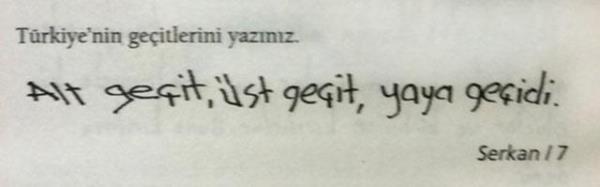 Türkiye'nin geçitlerini yazınız.
Alt geçit, üst geçit, yaya geçidi.
Serkan / 7